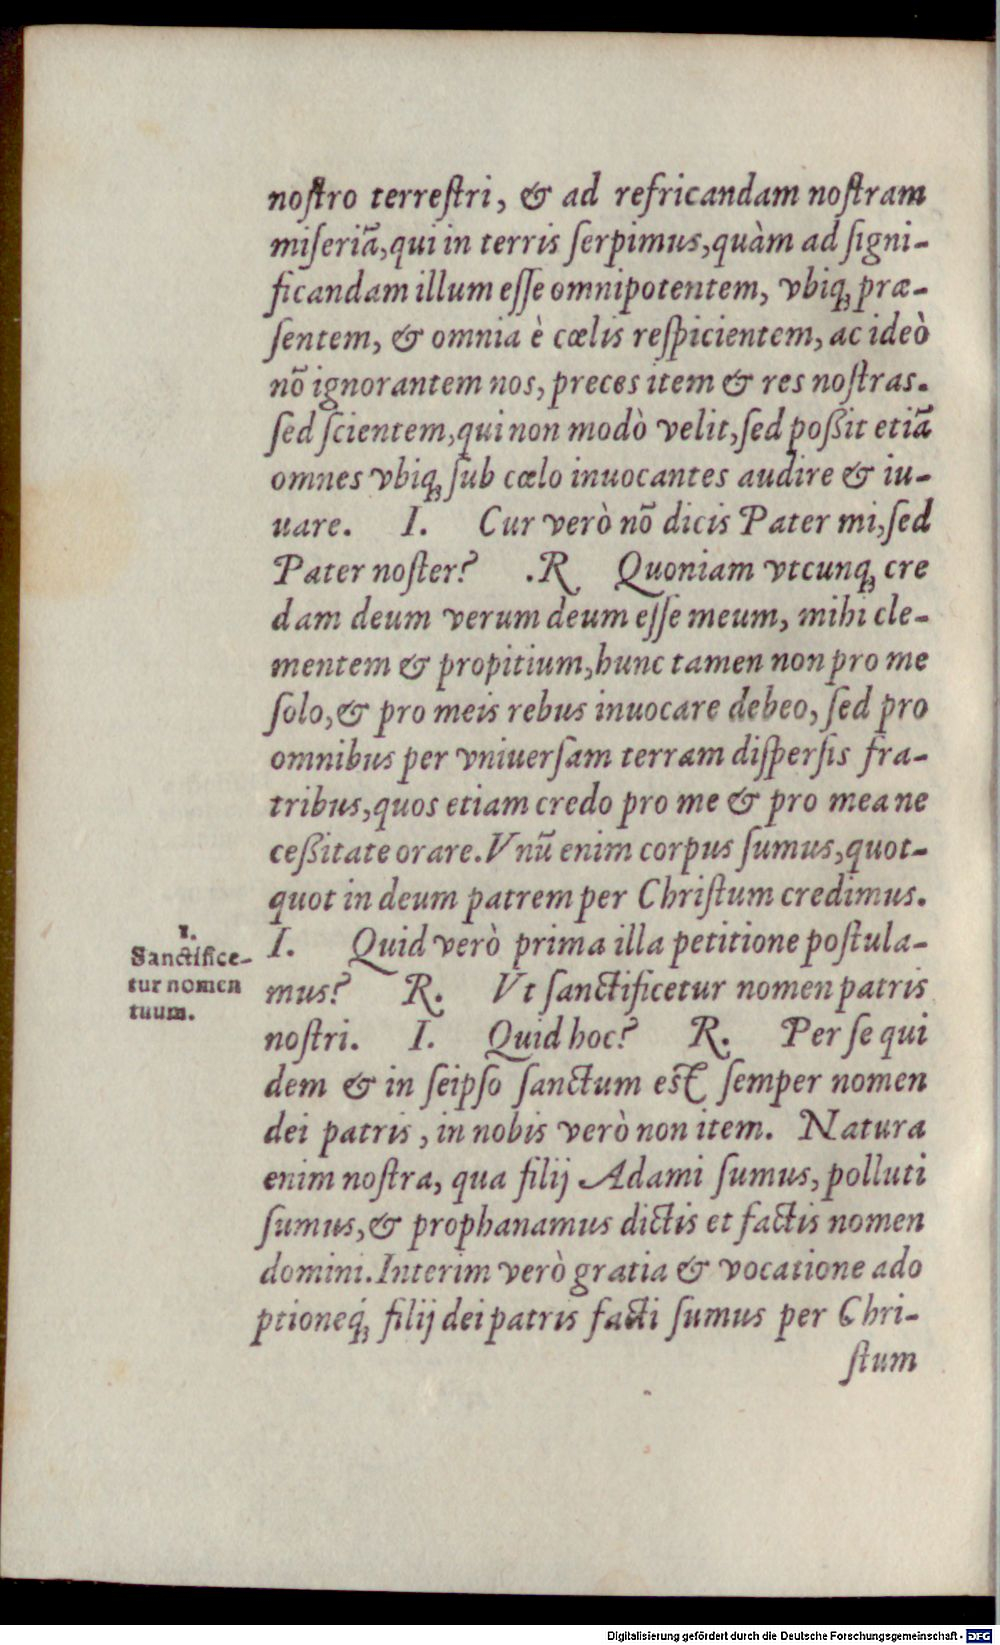 noſtro terreſtri, & ad refricandam noſtram
miſeriã, qui in terris ſerpimus, quàm ad ſigni-
ficandam illum eſſe omnipotentem, vbiq́ꝫ præ-
ſentem, & omnia è cœlis reſpicientem, ac ideò
nõ ignorantem nos, preces item & res noſtras.
ſed ſcientem, qui non modò velit, ſed poßit etiã
omnes vbiqꝫ ſub cœlo inuocantes audire & iu-
uare. I. Cur verò nõ dicis Pater mi, ſed
Pater noſter? .R Quoniam vtcunqꝫ cre
dam deum verum deum eſſe meum, mihi cle-
mentem & propitium, hunc tamen non pro me
ſolo, & pro meis rebus inuocare debeo, ſed pro
omnibus per vniuerſam terram diſperſis fra-
tribus, quos etiam credo pro me & pro mea ne
ceßitate orare. Vnũ enim corpus ſumus, quot-
quot in deum patrem per Chriſtum credimus.
1.
Sanctifice-
tur nomen
tuum.
I. Quid verò prima illa petitione poſtula-
mus? R. Vt ſanctificetur nomen patris
noſtri. I. Quid hoc? R. Per ſe qui
dem & in ſeipſo ſanctum eſt ſemper nomen
dei patris, in nobis verò non item. Natura
enim noſtra, qua filij Adami ſumus, polluti
ſumus, & prophanamus dictis et factis nomen
domini. Interim verò gratia & vocatione ado
ptioneq́ꝫ filij dei patris facti ſumus per Chri-
ſtum
Digitalisierung gefördert durch die Deutsche Forschungsgemeinschaft - DFG